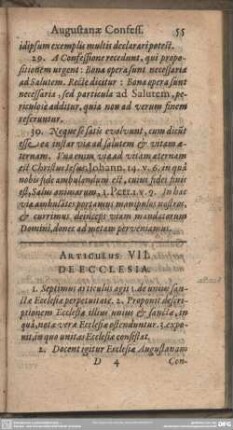 Augustanæ Confess. 55
idipsum exemplis multis declarari potest.
29. A Confessione recedunt, qui propo-
sitionem urgent: Bona opera sunt necessaria
ad Salutem. Recte dicitur: Bona opera sunt
necessaria, sed particula ad Salutem, pe-
riculosè additur, quia non ad verum finem
referuntur.
30. Neque se satis evolvunt, cum dicũt
esse ea instar viæ ad salutem & vitam æ-
ternam. Una enim via ad vitam æternam
est Christus Jesus, Johann. 14. v. 6. in quâ
nobis fide ambulandum est, cujus fidei finis
est, Salus animarum, 1. Petr. 1. v. 9. In hac
via ambulãtes portamus manipulos nostros,
& currimus deinceps viam mandatorum
Domini, donec ad metam perveniamus.
ARTICULUS VII.
DE ECCLESIA.
1. Septimus articulus agit 1. de unius san-
ctæ Ecclesiæ perpetuitate. 2. Proponit descri-
ptionem Ecclesiæ illius unius & sanctæ, in
quâ, notæ veræ Ecclesiæ ostenduntur. 3. expo-
nit in quo unitas Ecclesiæ consistat.
2. Docent igitur Ecclesiæ Augustanam
D 4 Con-